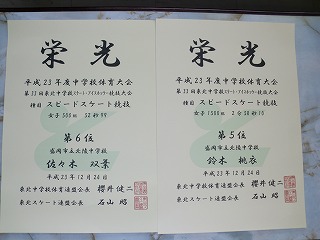 栄光
平成23年度中学校体育大会
第33回東北中学校スケート・アイスホッケー競技大会
種目 スピードスケート競技
女子500m 52秒99
第6位
盛岡市立北陵中学校
佐々木 双葉
平成23年12月24日
東北中学校体育連盟会長 櫻井健二
東北スケート連盟会長 石山昭
栄光
平成23年度中学校体育大会
第33回東北中学校スケート・アイスホッケー競技大会
種目 スピードスケート競技
女子1500m 2分50秒16
第5位
盛岡市立北陵中学校
鈴木 桃衣
平成23年12月24日
東北中学校体育連盟会長 櫻井健二
東北スケート連盟会長 石山昭